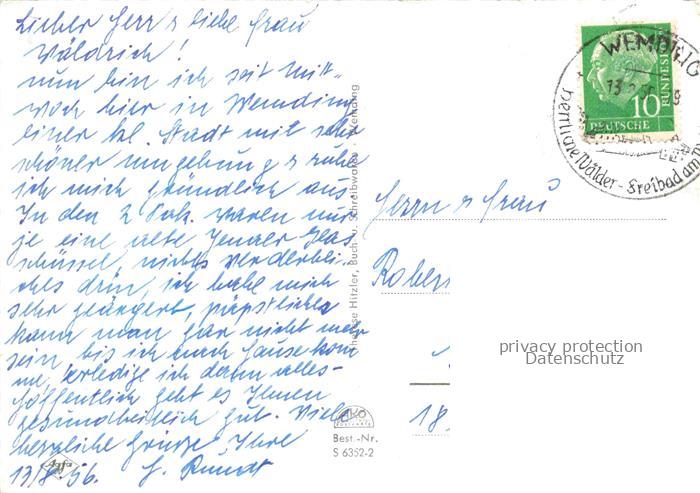 Lieber Herr u liebe Frau
Wäldrich!
nun bin ich seit Mitt-
woch hier in Wemding
einer kl. Stadt mit sehr
schöner Umgebung u ruhe
ich mich gründlich aus
In den 2 Pak. waren nur
je eine alte Jenaer Glas
schüssel, nichts verderbli-
ches drin, ich habe mich
sehr geärgert, päpstlicher
kann man gar nicht mehr
sein, bis ich nach Hause kom
me, erledige ich dann alles-
hoffentlich geht es Ihnen
gesundheitlich gut. Viele
herzliche Grüsse Ihre
13/8 56.
Agfa
Hitzler, Buch- u. Schreibwaren - Wemding
AKO
Best.-Nr.
S 6352-2
WEMDING
herrliche Wälder - Freibad am
10
DEUTSCHE
BUNDESPOST
Herrn u Frau
Rober
18.
privacy protection
Datenschutz